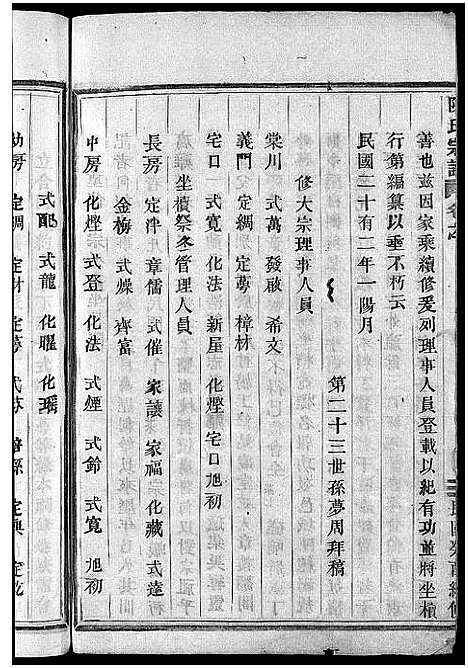 陳氏宗譜 卷之
善也茲因家乘續修爰列理事人員登載以紀有功並將坐積
行第編纂以垂不朽云
民國二十有二年一陽月
第二十三世孫夢周拜稿
修大宗理事人員
棠川 式萬 發啟 希文
義門 定綢 定夢 樟材
宅口 式寬 化法 新屋 化煙 宅口 旭初
坐積祭冬管理人員
長房 定津 章儒 式催 家讓 家福 化藏 式達
金梅 式燥 齊富
中房 化煙 式登 化法 式煙 式鈴 式寬 旭初
式配 式龍 化曜 化瑤
幼房 定綢 定材 定夢